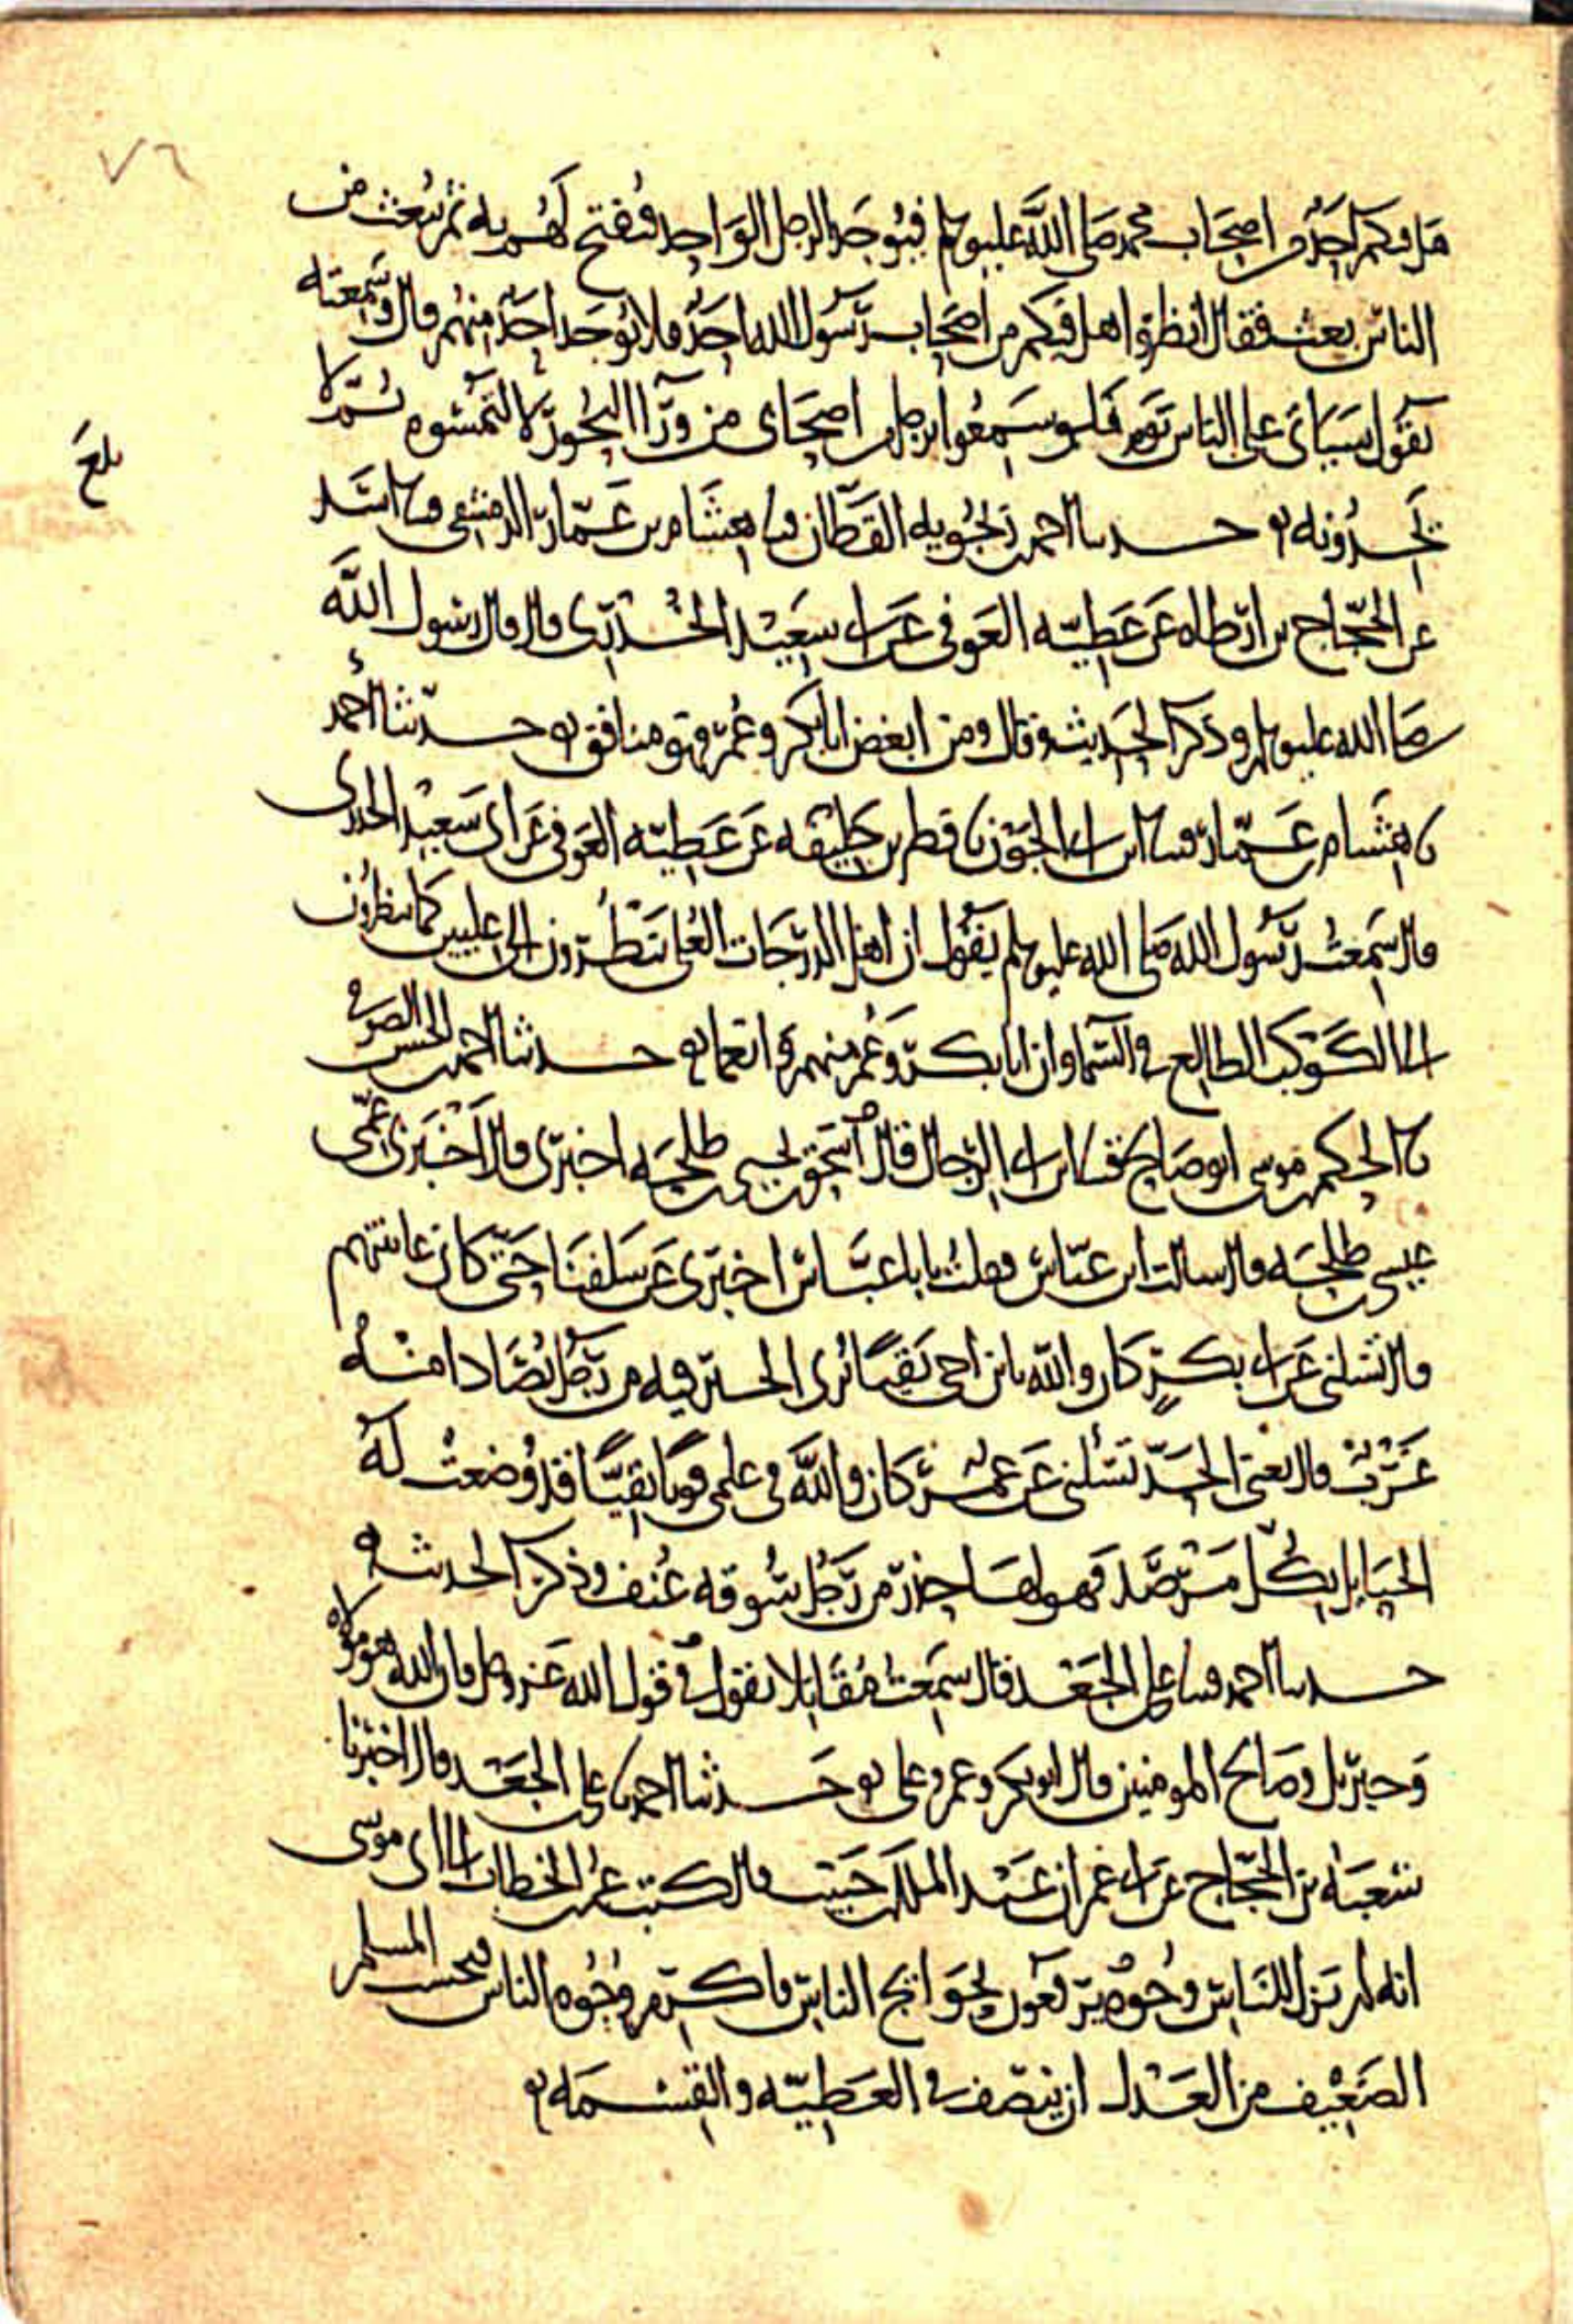 ٧٦
هل فيكم احد من اصحاب محمد صلى الله عليه وسلم فيوجد الرجل الواحد فيفتح لهم به ثم يبعث من
الناس بعث فيقال انظروا هل فيكم من اصحاب رسول الله احد فلا يوجد احد منهم قال وسمعته
يقول سياتي على الناس يوم فلو سمعوا برجل من اصحابي من ورآ البحور لالتمسوه ثم لا
يجدونه حدثنا احمد بن زنجويه القطان قثنا هشام بن عمار الدمشقي قثنا اسد
عن الحجاج بن ارطاه عن عطيه العوفي عن ابي سعيد الخدري قال قال رسول الله
صلى الله عليه وسلم وذكر الحديث وقال ومن ابغض ابا بكر وعمر فهو منافق حدثنا احمد
نا هشام بن عمار قثنا ابن ابي الجون نا فطر بن خليفه عن عطيه العوفي عن ابي سعيد الخدري
قال سمعت رسول الله صلى الله عليه وسلم يقول ان اهل الدرجات العلى ينظرون الى عليين كما ينظرون
الى الكوكب الطالع في السما وان ابا بكر وعمر منهم وانعما حدثنا احمد بن الحسن الصوفي
نا الحكم بن موسى ابو صالح قثنا ابن ابي الرجال قال اسحق بن يحيى بن طلحه اخبرني قال اخبرني عمي
عيسى بن طلحه قال سالت ابن عباس فقلت يابا عباس اخبرني عن سلفنا حتى كان عاينتهم
قال تسلني عن ابي بكر كان والله يابن اخي تقيا نرى الخير فيه من رجل يصادا منه
غرب قال يعني الحد تسئلني عن عمر كان والله في علمي قويا تقيا قد وضعت له
الحبايل بكل مرصد فهو لها حذر من رجل سوقه عنف وذكر الحديث
حدثنا احمد قثنا علي بن الجعد قال سمعت مقابلا يقول في قول الله عز وجل فان الله هو مولاه
وجبريل وصالح المومنين قال ابو بكر وعمر وعلي حدثنا احمد نا علي بن الجعد قال اخبرنا
شعبه بن الحجاج عن ابي عمران عبد الملك بن حبيب قال كتب عمر بن الخطاب الى ابي موسى
انه لم تزل للناس وجوه يرفعون بحوايج الناس فاكرم وجوه الناس فبحسب المسلم
الضعيف من العدل ان ينصف في العطيه والقسمه
بلغ